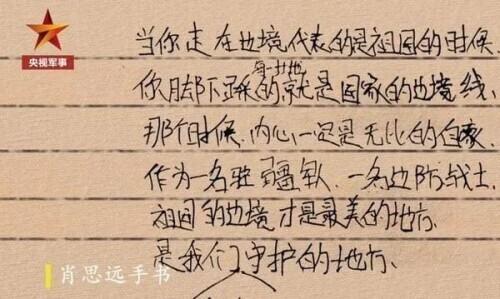 央视军事
当你走在边境代表的是祖国的时候
你脚下踩的每一寸地就是国家的边境线、
那个时候、内心一定是无比的自豪、
作为一名驻疆军人、一名边防战士
祖国的边境才是最美的地方、
是我们守护的地方、
肖思远手书